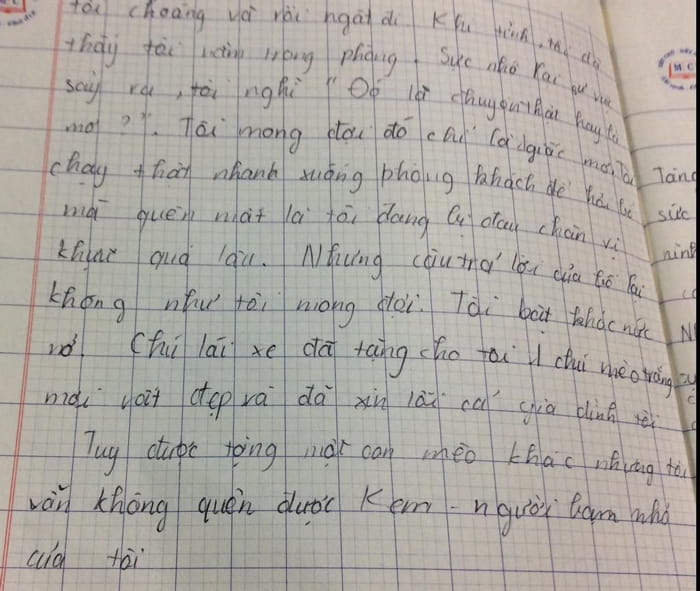 tôi choáng và rồi ngất đi. Khi tỉnh, tôi đã
thấy tôi nằm trong phòng. Sực nhớ lại sự việc
sảy ra, tôi nghĩ "Đó là chuyện thật hay là
mơ ?". Tôi mong đợi đó chỉ là giấc mơ. Tôi
chạy thật nhanh xuống phòng khách để hỏi bố
mà quên mất là tôi đang bị đau chân vì
khóc quá lâu. Nhưng câu trả lời của bố lại
không như tôi mong đợi. Tôi bật khóc nức
nở. Chú lái xe đã tặng cho tôi 1 chú mèo trắng
mới vật đẹp và đã xin lỗi cả gia đình tôi
Tuy được tặng một con mèo khác nhưng tôi
vẫn không quên được Kem - người bạn nhỏ
của tôi
M.C
Tặng
sức
ninh